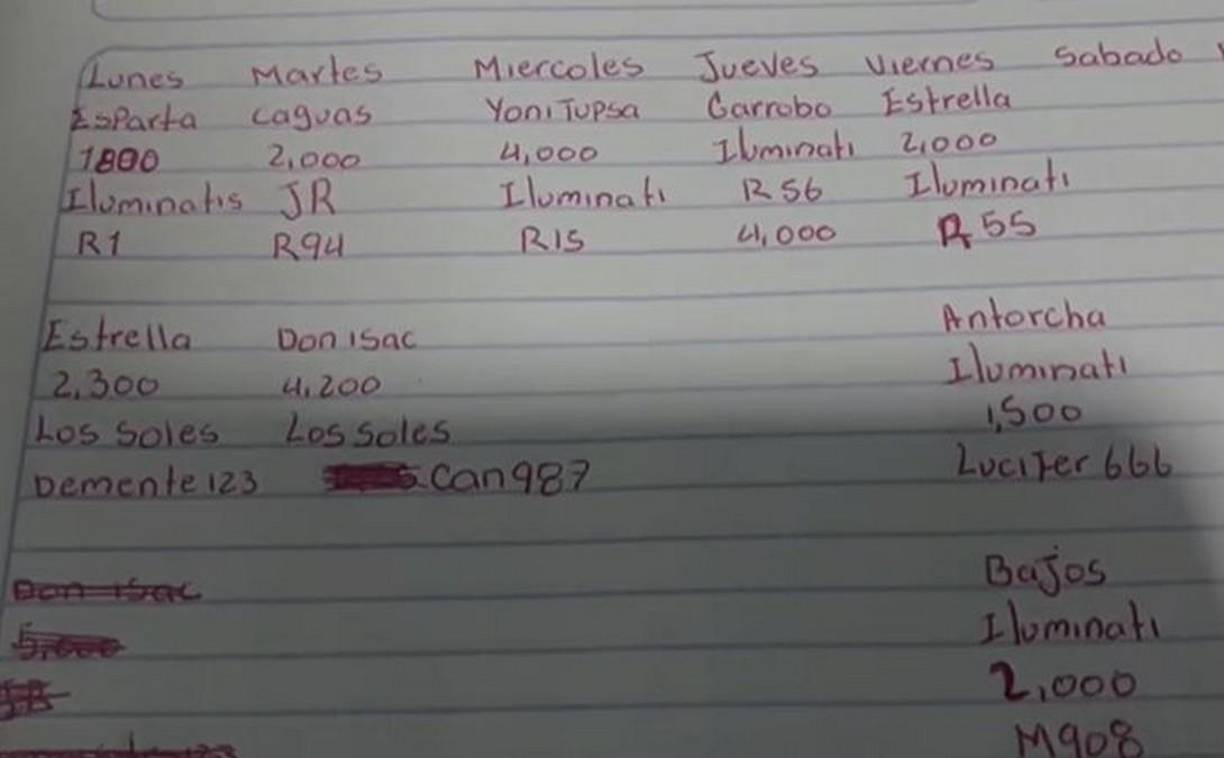 Lunes Martes Miercoles Jueves Viernes Sabado
Esparta caguas Yoni Tupsa Garrobo Estrella
1800 2,000 4,000 Iluminati 2,000
Iluminatis JR Iluminati R56 Iluminati
R1 R94 R15 4,000 R55
Estrella Don isac Antorcha
2,300 4,200 Iluminati
Los soles Los soles 1,500
Demente 123 Can987 Lucifer 666
Don isac Bajos
5,000 Iluminati
2,000
M908